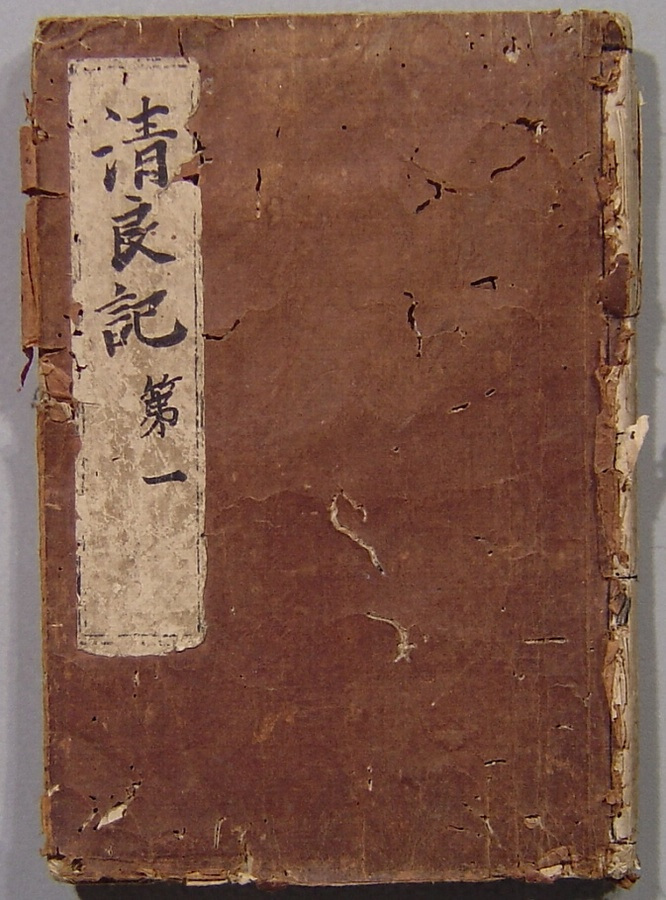 清良記第一